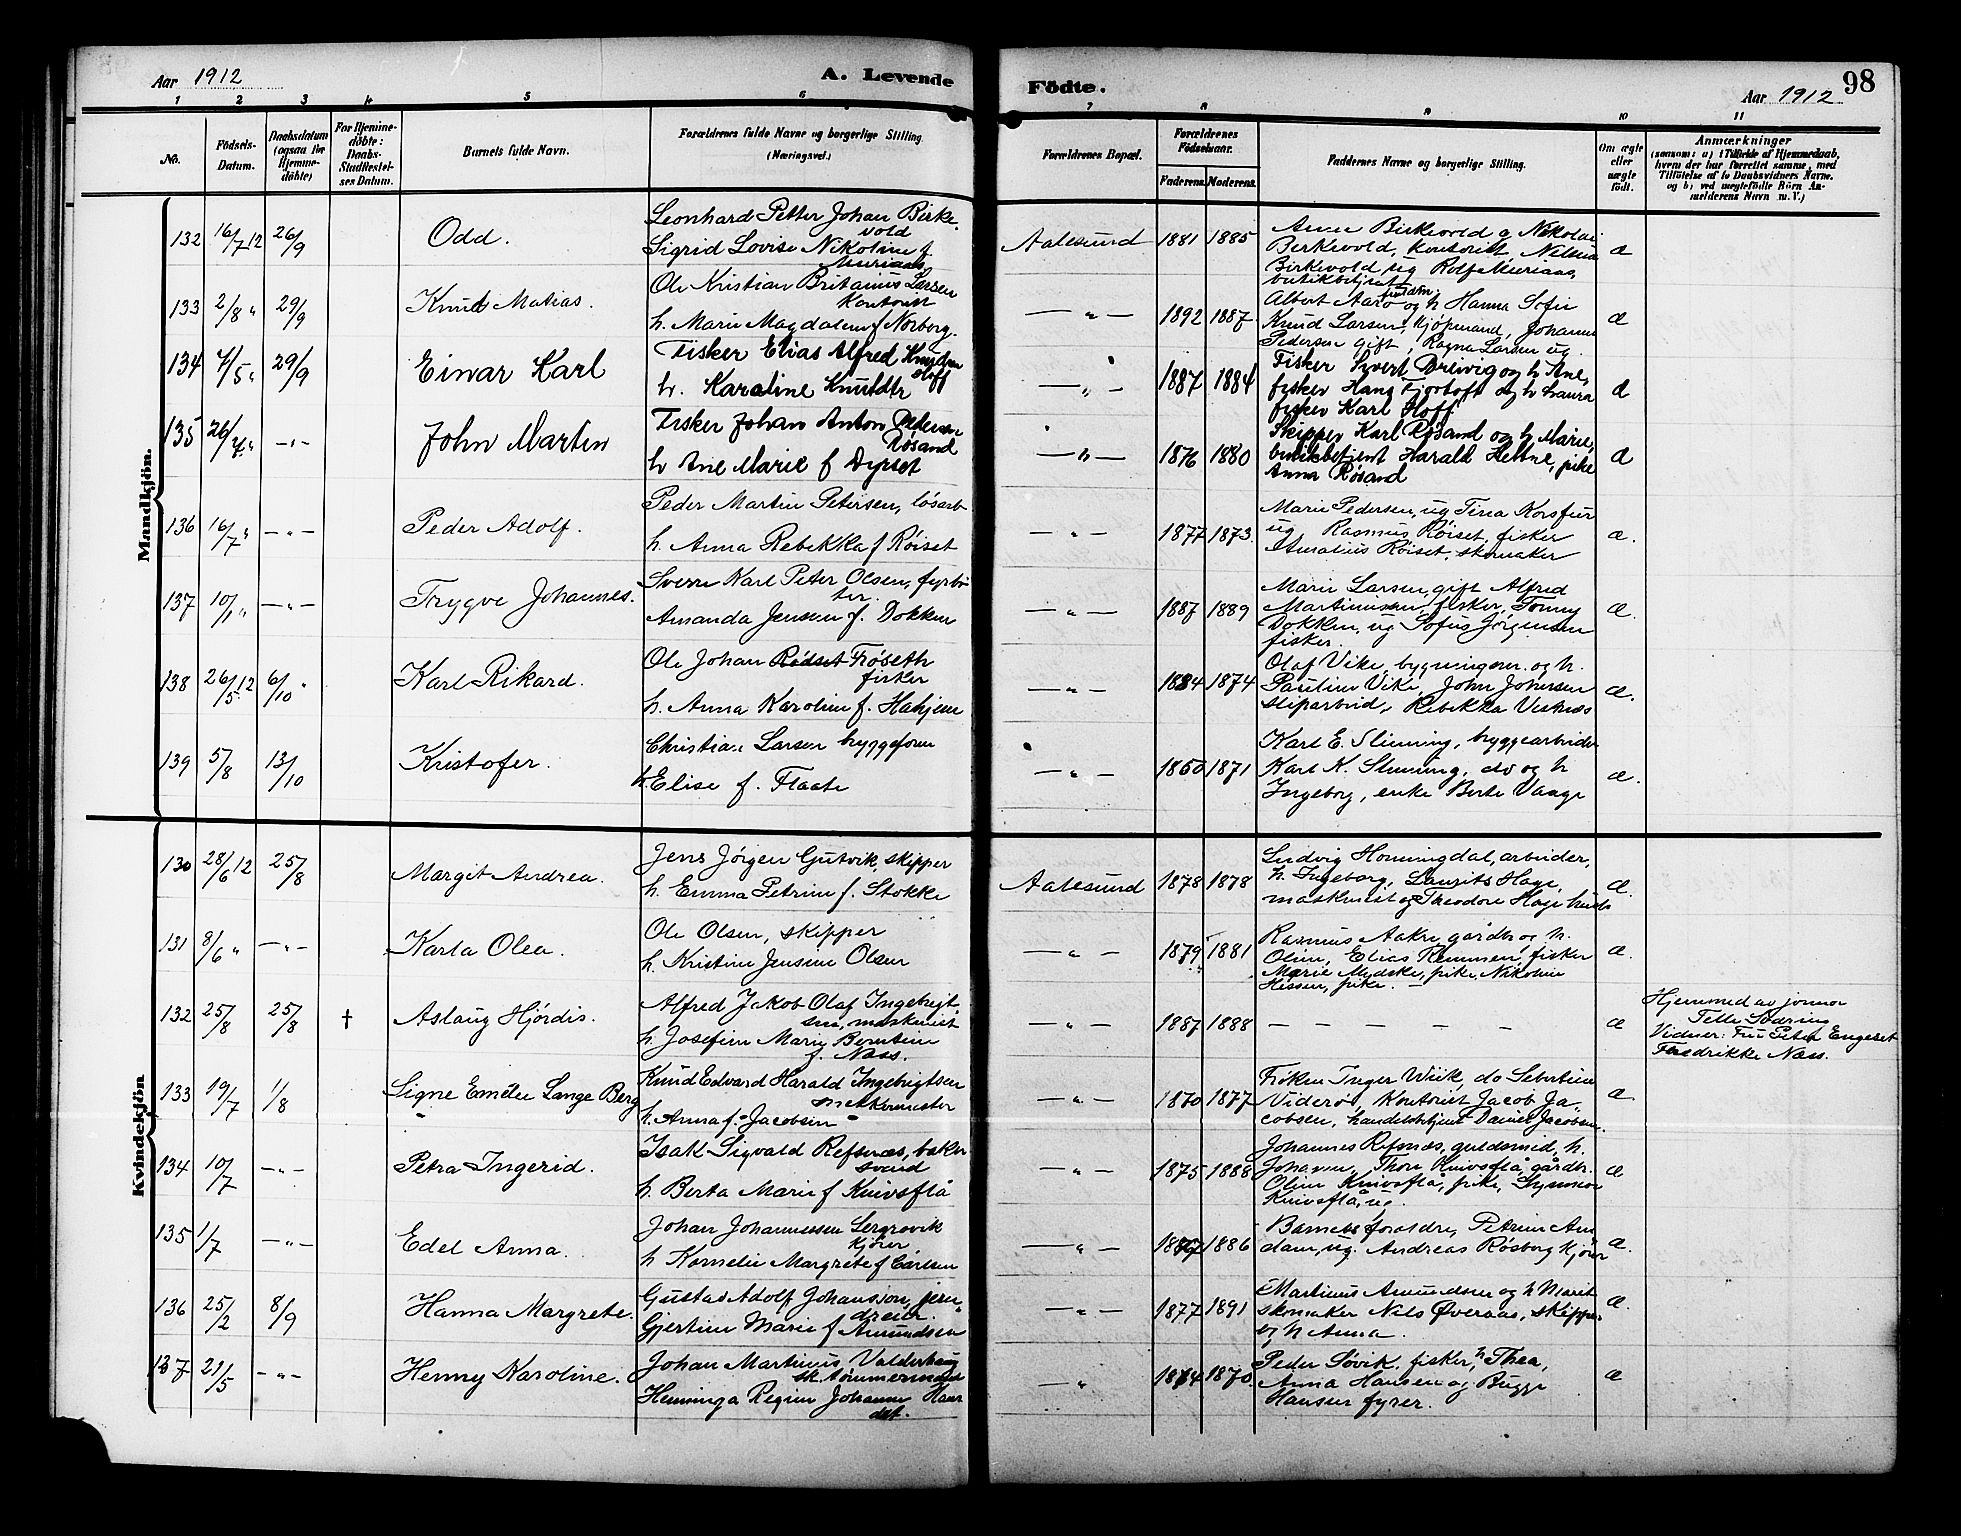 Aar 1912
A. Levende
Födte.
Aar 1912
98
1 2 3 4 5 6 7 8 9 10 11
No.
Födsels-Datum.
Daabsdatum (ogsaa for Hjemme-döbte)
For Hjemme-döbte: Daabs-Stadfæstel-ses Datum.
Barnets fulde Navn.
Forældrenes fulde Navne og borgerlige Stilling
(Næringsvei.)
Forældrenes Bopæl.
Forældrenes Födselsaar.
Faderens. Moderens.
Faddernes Navne og borgerlige Stilling.
Om ægte eller uægte født.
Anmærkninger
(saasom: a) i Tilfælde af Hjemmedaab,
hvem der har forrettet samme, med
Tilföielse af to Daabsvidners Navne.
og b) ved uægtefödte Börn An-
melderens Navn m. V.)
Mandkjön.
132 16/7 12 26/9 Odd.
Leonhard Petter Johan Birke-
vold
Sigrid Lovise Nikoline f.
Muriaas
Aalesund 1881 1885
Anne Birkevold og Nikolai
Birkevold, kontorist, Nelsina
Birkevold ug Rolf Muriaas,
butikbetjent
æ
133 2/8 " 29/9 Knud Matias.
Ole Kristian Britanius Larsen
kontorist
h. Marie Magdalene f Norborg.
— " — 1892 1887
Albert Aarø og h Hanna Sofie
Knud Larsen, kjøpmand, Johanne
Pedersen gift, Ragna Larsen ug.
æ
134 4/5 " 29/9 Einar Karl
Fisker Elias Alfred Knudsen
Hoff
h. Karoline Knuldtr
— " — 1887 1884
Fisker Sivert Dreivig og h Ane,
fisker Hans Fjørtoft og h Laura
fisker Karl Hoff
æ
135 26/4 " — " — John Martin
Fisker Johan Anton Pedersen
Røsand
h Ane Marie f Dyrset
— " — 1876 1880
Skipper Karl Røsand og h Marie,
butikbetjent Harald Heltne, pike
Anna Røsand
æ
136 16/7 " — " — Peder Adolf.
Peder Martin Petersen, løsarb
h. Anna Rebekka f Røiset
— " — 1877 1873.
Marie Pedersen, ug Tina Korsfur
ug Rasmus Røiset, fisker
Amalius Røiset, skomaker
æ.
137 10/1 " — " — Trygve Johannes.
Sverre Karl Peter Olsen, fyrbø-
ter.
Amanda Jensen f. Dokken
— " — 1887 1889
Marie Larsen, gift Alfred
Martinussen, fisker, Tomny
Dokken, ug Sofus Jørgensen
fisker.
æ.
138 26/5 12 6/10 " Karl Rikard.
Ole Johan Rødset Frøseth
fisker
h. Anna Karoline f. Hahjem
— " — 1884 1874
Olaf Vike, bygningssn. og h.
Pauline Vike, John Johnsen
sliparbeid, Rebekka Visknæs
æ.
139 5/8 13/10 Kristofer.
Christian Larsen bryggeform
h. Elise f. Flaate
— " — 1860 1871
Karl E. Slinning, bryggearbeider
Karl K. Slinning, do og h
Ingeborg, enke Berte Vaage
æ.
Kvindekjön
130 28/6 12 25/8 Margit Andrea.
Jens Jörgen Gjutvik, skipper
h. Emma Petrine f. Stokke
Aalesund 1878 1878
Ludvig Honningdal, arbeider,
h. Ingeborg, Laurits Hage,
maskinist og Theodore Hage hustr
æ
131 8/6 " — " — Karla Olea.
Ole Olsen, skipper
h. Kristine Jensine Olsen
— " — 1879 1881
Rasmus Aakre, gårdbr og h.
Oline, Elias Remmen, fisker
Marie Mydske, pike, Nikoline
Hessen, pike. —
æ.
132 25/8 25/8 † Aslaug Hjørdis.
Alfred Jakob Olaf Ingebrigt-
sen, maskinist
h. Josefine Marie Berntsen
f. Næss.
— " — 1887 1888
— — — — —
æ
Hjemmed av jormor
Telle Sødring
Vidner: Fru Peter Engeset
Fredrikke Næss.
133 19/7 1/8 Signe Emilie Lange Berg
Knud Edvard Harald Ingebrigtsen
snekkermester
h. Anna f. Jacobsen
— " — 1870 1877
Frøken Inger Wiik, do Sebertine
Viderø Kontorist Jacob Ja
cobsen, handelsbetjent Daniel Jacobsen.
æ
134 10/7 — " — Petra Ingerid.
Isak Sigvald Refsnæs, baker
svend
h. Berta Marie f Knivsflå
— " — 1875 1888
Johannes Refsnæs, guldsmed, h.
Johanne, Thore Knivsflå, gårdbr.
Oline Knivsflå, pike, Synnøve
Knivsflå, ug.
æ
135 1/7 — " — Edel Anna.
Johan Johannessen Sergrovik
kjører
h Kornelie Margrete f Carlsen
— " — 1886
Barnets forældre, Petrine An
dam, ug. Andreas Røsborg kjører
æ.
136 25/2 8/9 Hanna Margrete.
Gustav Adolf Johansson, jern-
dreier.
Gjertine Marie f Amundsen
— " — 1877 1891
Martinus Amundsen og h Marit
skomaker Nils Øveraas, skipper
og h Anna.
æ
137 21/5 — " — Henny Karoline.
Johan Martinus Valderhaug
sk. tømmermand
Henninga Regine Johanne Haar
det.
" 1874 1870
Peder Søvik, fisker, h Thea,
Anna Hansen og Bugge
Hansen fyrer.
æ